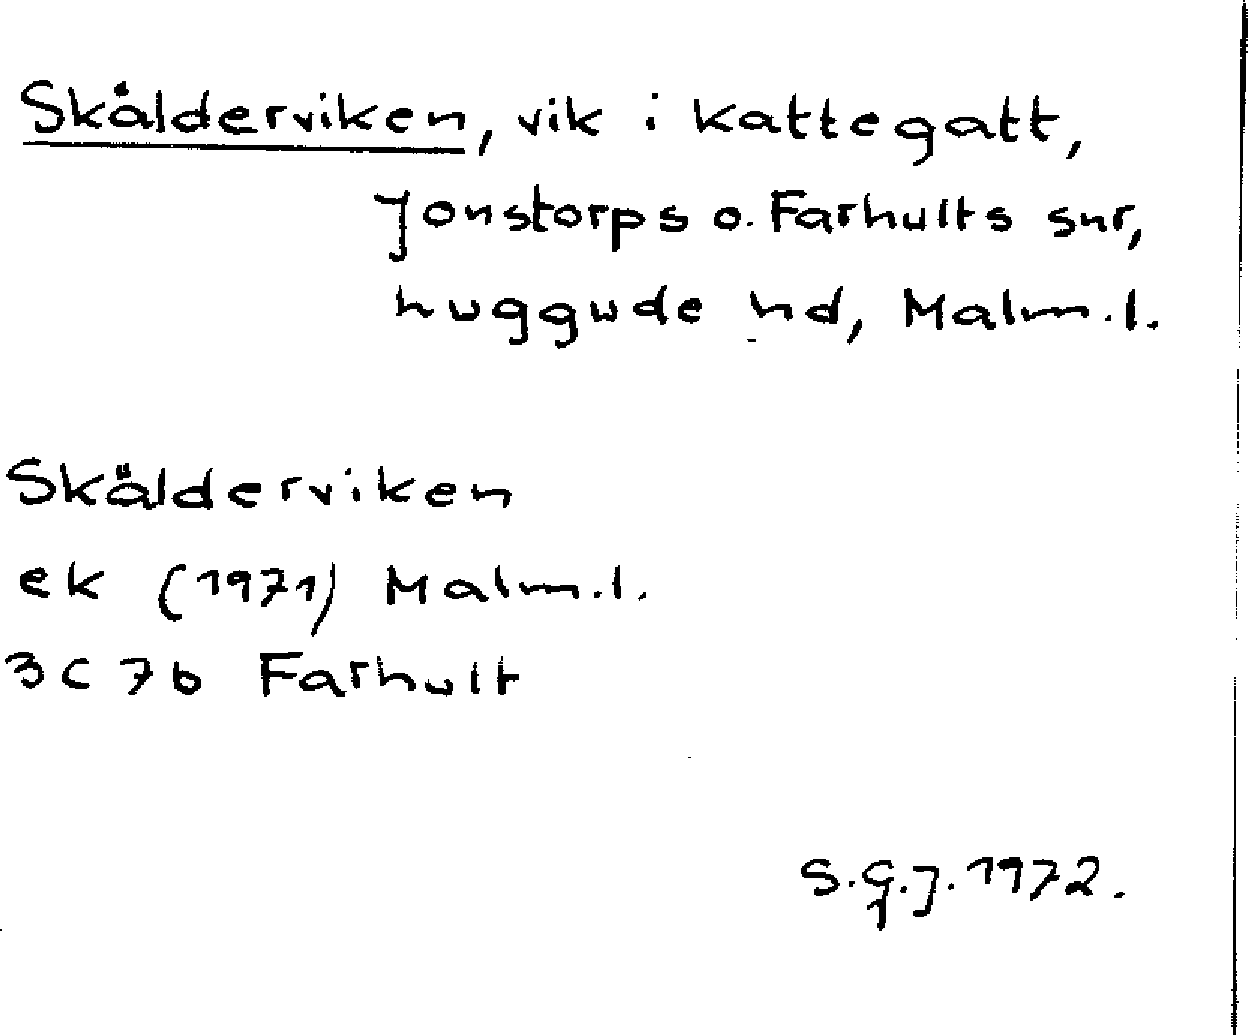 Skålderviken, vik i Kattegatt,
Jonstorps o. Farhults snr,
Luggude hd, Malm.l.
Skälderviken
ek (1971) Malm.l.
3C 7b Farhult
S.G.J. 1972.